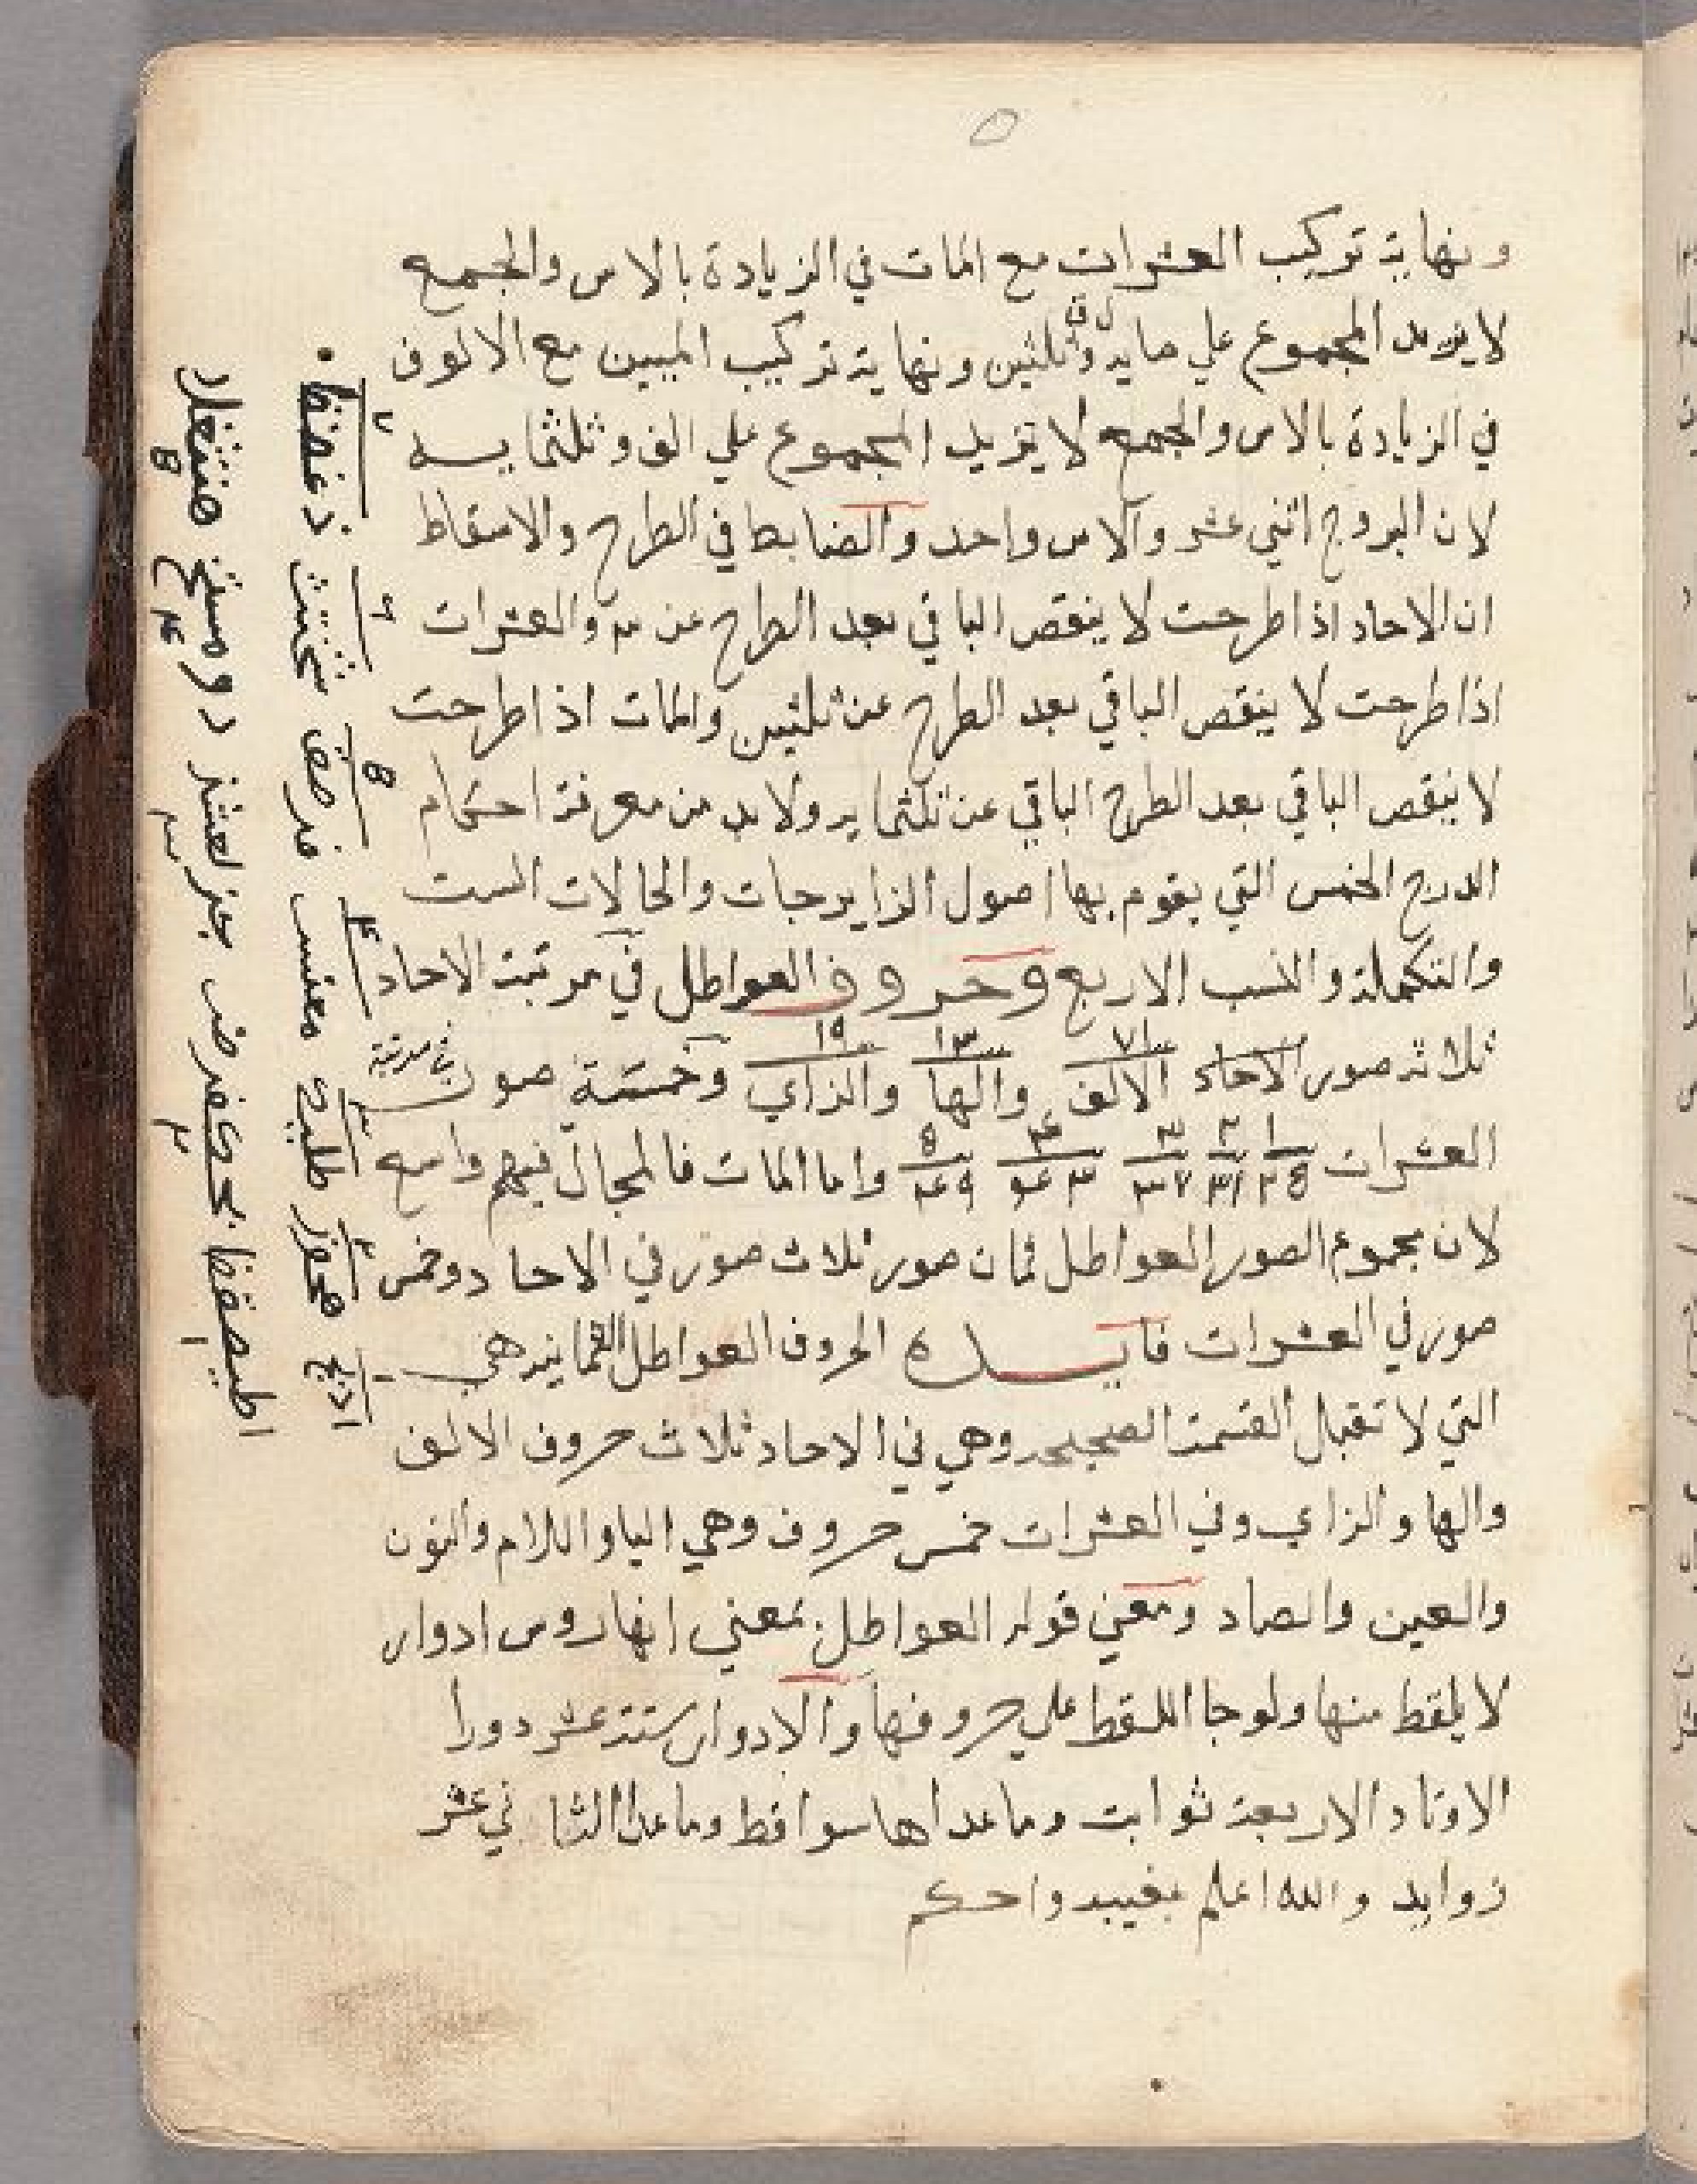 ونهاية تركيب العشرات مع المات في الزيادة بالاس والجمع
لا يزيد المجموع علي مايه وثلثين ونهاية تركيب الميين مع الالوف
في الزيادة بالاس والجمع لا يزيد المجموع علي الف وثلثمايه
لان البروج اثني عشر والاس واحد والضابط في الطرح والاسقاط
ان الاحاد اذا طرحت لا ينقص الباقي بعد الطرح عن ٣ والعشرات
اذا طرحت لا ينقص الباقي بعد الطرح عن ثلثين والمات اذا طرحت
لا ينقص الباقي بعد الطرح الباقي عن ثلثمايه ولا بد من معرفة احكام
الدرج الخمس التي يقوم بها اصول الزايرجات والحالات الست
والتكملة والنسب الاربع وحروف العواطل في مرتبة الاحاد
ثلاثة صور الاحاد الالف والها والزاي وخمسة صور في مرتبة
العشرات واما المات فالمجال فيهم واسع
لان مجموع الصور العواطل ثمان صور ثلاث صور في الاحاد وخمس
صور في العشرات فايده الحروف العواطل الثمانيه هي
التي لا تقبال القسمة الصحيحه وهي في الاحاد ثلاث حروف الالف
والها والزاي وفي العشرات خمس حروف وهي اليا واللام والنون
والعين والصاد ومعني قوله العواطل بمعني انها روس ادوار
لا يلقط منها ولو جا اللقط علي حروفها والادوار ستة عشر دورا
الاوتاد الاربعة ثوابت وما عداها سواقط وما عدا الثاني عشر
زوايد والله اعلم بغيبه واحكم